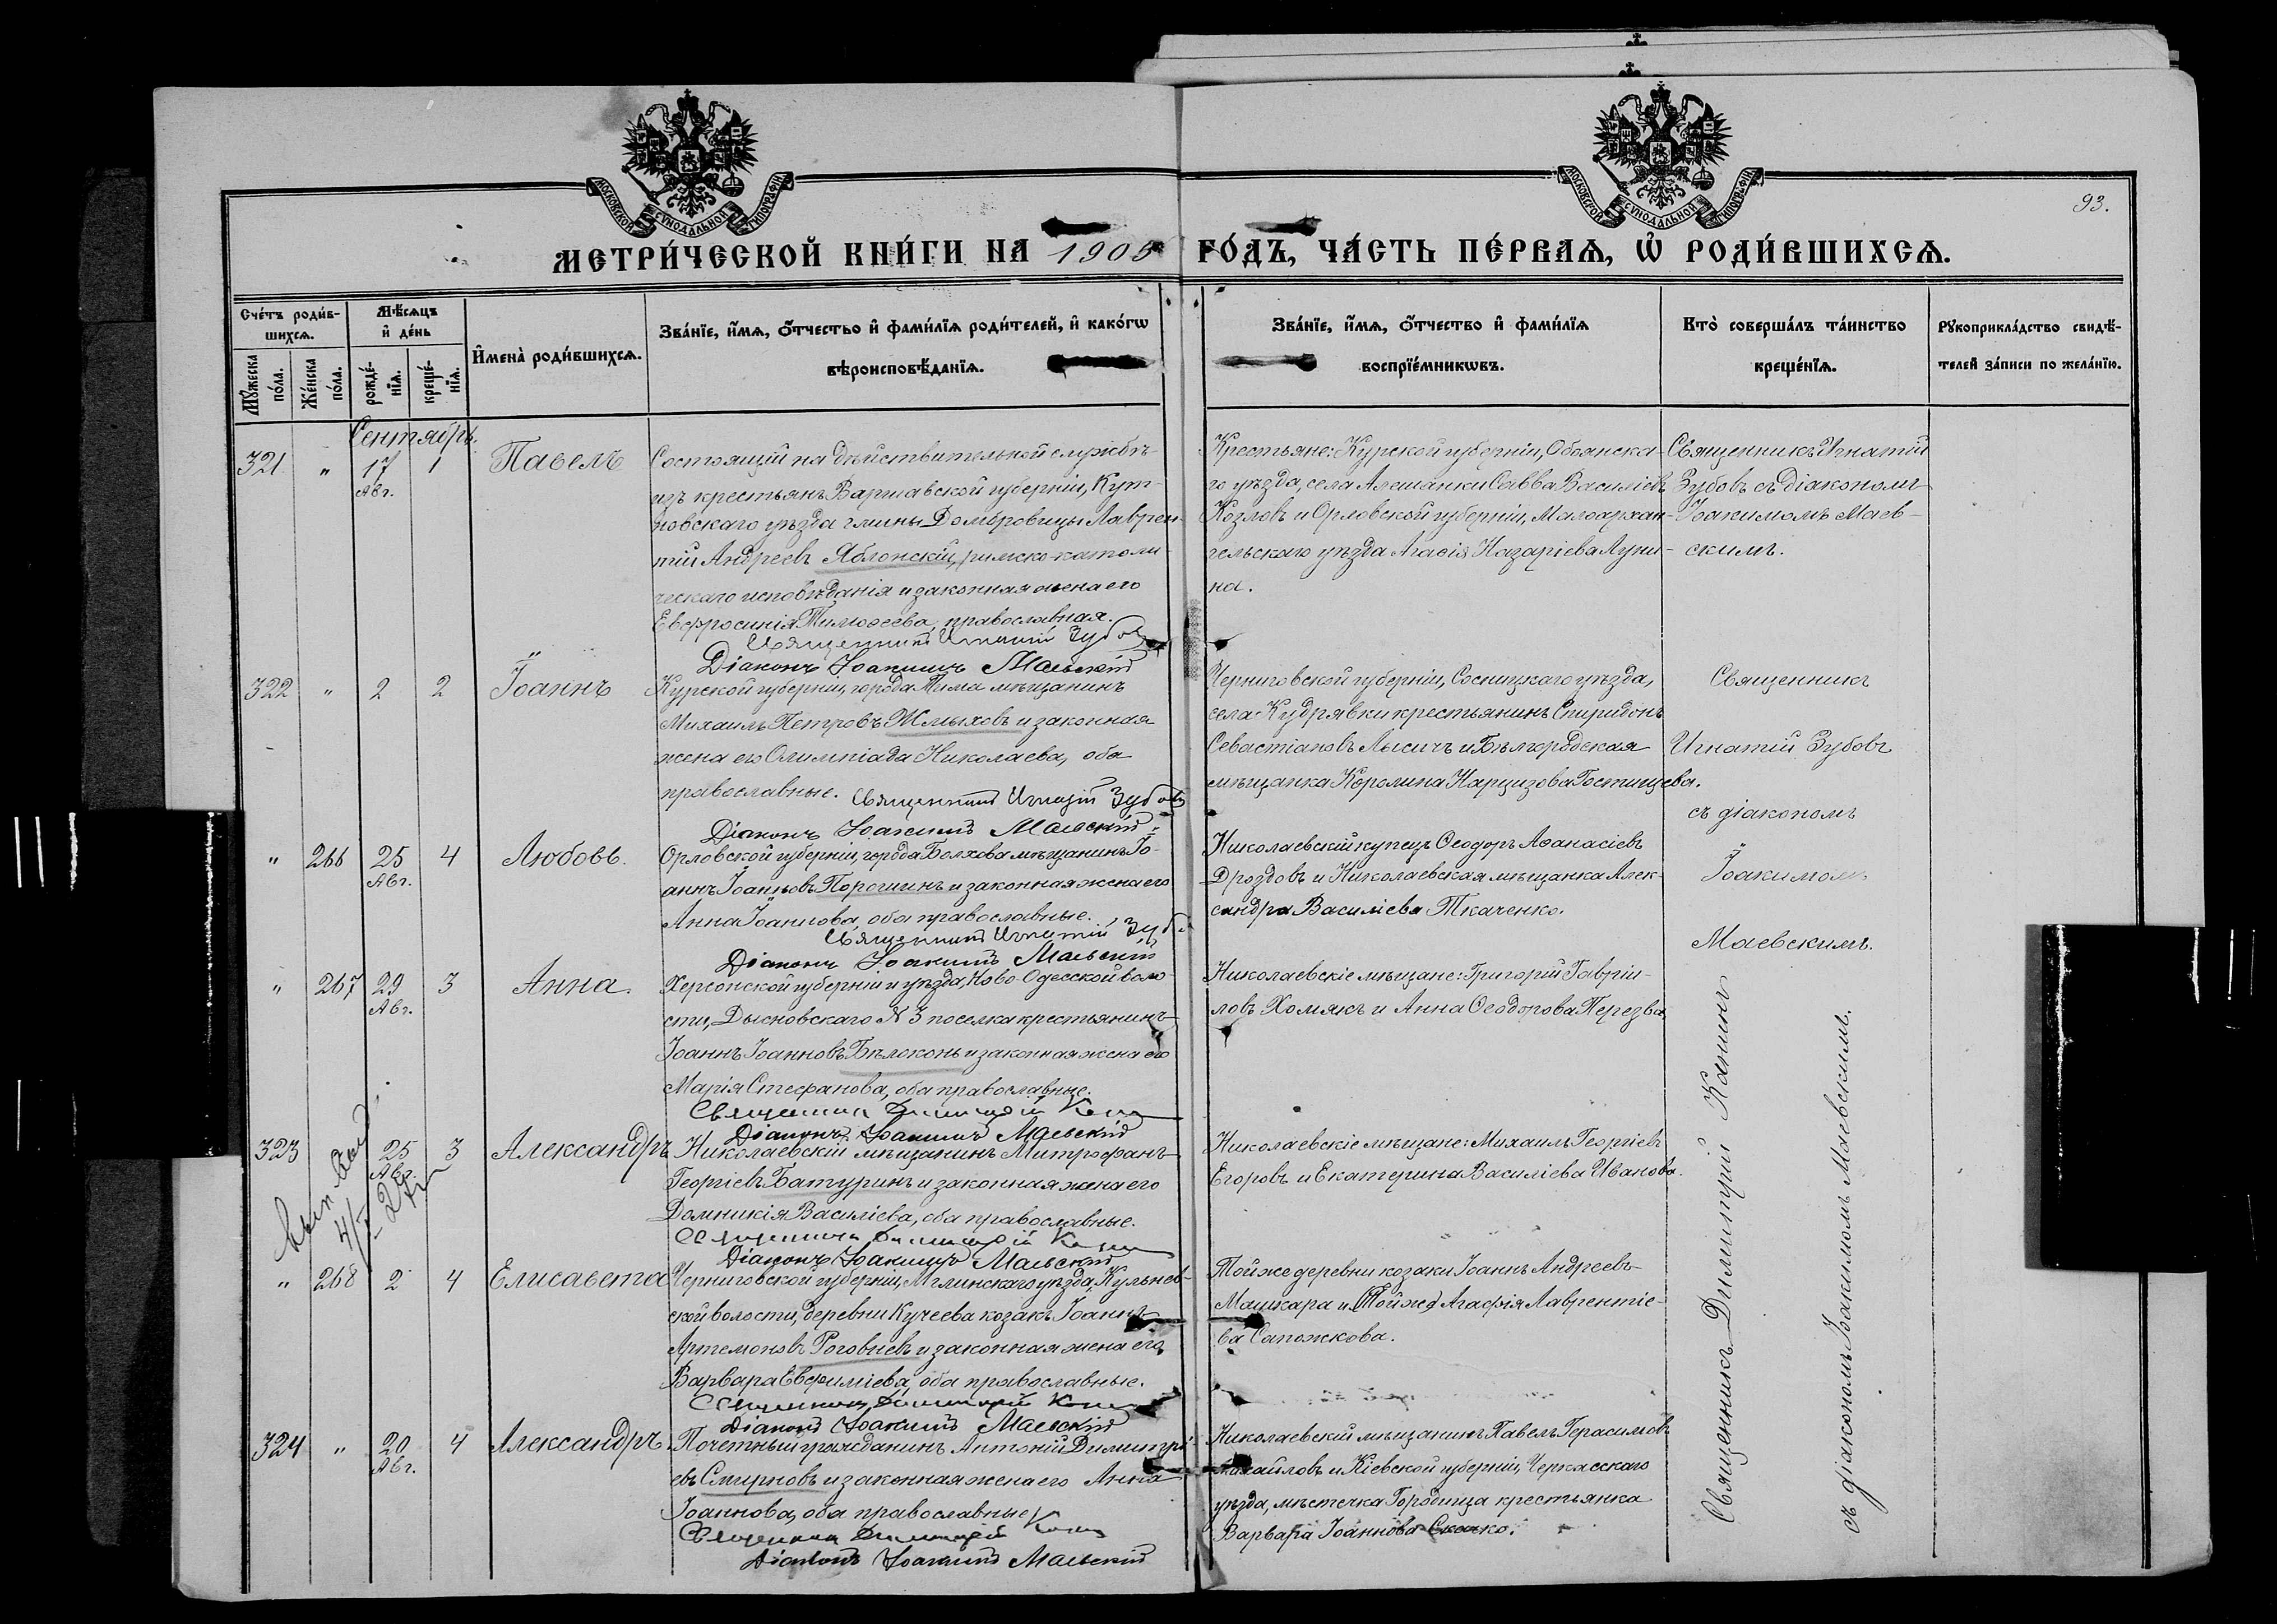 МОСКОВСКОЙ СѴНОДАЛЬНОЙ ТИПОГРАФІИ
МОСКОВСКОЙ СѴНОДАЛЬНОЙ ТИПОГРАФІИ
93.
МЕТРИ́ЧЕСКОЙ КНИ́ГИ НА 1905 ГО́ДЪ, ЧА́СТЬ ПЕ́РВАѦ, Ѡ҆ РОДИ́ВШИХСѦ.
Сче́тъ роди́в-
шихсѧ.
Мꙋ́жеска по́ла.
Же́нска по́ла.
Мѣ́сѧцъ
и҆ де́нь
рожде́-
нїѧ.
креще́-
нїѧ.
И҆мена̀ роди́вшихсѧ.
Зва́нїе, и҆́мѧ, ѻ҆́тчество и҆ фами́лїѧ роди́телей, и҆ како́гѡ
вѣроисповѣ́данїѧ.
Зва́нїе, и҆́мѧ, ѻ҆́тчество и҆ фами́лїѧ
воспрїе́мникѡвъ.
Кто̀ соверша́лъ та́инство
креще́нїѧ.
Рꙋкоприкла́дство свидѣ́-
телей за́писи по жела́нїю.
Сентябрь.
321 " 17 Авг. 1 Павелъ
Состоящій на дѣйствительной службѣ
изъ крестьянъ Варшавской губерніи, Кут-
новскаго уѣзда гмины Домбровицы Лаврен-
тій Андреевъ Яблонскій, римско-католи-
ческаго исповѣданія и законная жена его
Евфросинія Тимоѳеева, православная.
Священникъ Игнатій Зубовъ
Діаконъ Іоакимъ Маевскій
Крестьяне: Курской губерніи, Обоянска-
го уѣзда, села Алешанки Савва Василіевъ
Козловъ и Орловской губерніи, Малоархан-
гельскаго уѣзда Агаѳія Назаріева Луни-
на.
Священникъ Игнатій
Зубовъ съ діакономъ
Іоакимомъ Маев-
скимъ.
322 " 2 2 Іоаннъ
Курской губерніи, города Тима мѣщанинъ
Михаилъ Петровъ Жмыховъ и законная
жена его Олимпіада Николаева, оба
православные. Священникъ Игнатій Зубовъ
Діаконъ Іоакимъ Маевскій
Черниговской губерніи, Сосницкаго уѣзда,
села Кудрявки крестьянинъ Спиридонъ
Севастіановъ Лысичъ и Бѣлгородская
мѣщанка Королина Нарцизова Гостищева.
Священникъ
Игнатій Зубовъ
съ діакономъ
Іоакимомъ
Маевскимъ.
" 266 25 Авг. 4 Любовь.
Орловской губерніи, города Болхова мѣщанинъ Іо-
аннъ Іоанновъ Порошинъ и законная жена его
Анна Іоаннова, оба православные.
Священникъ Игнатій Зуб
Діаконъ Іоакимъ Маевскій
Николаевскій купецъ Ѳеодоръ Аѳанасіевъ
Дроздовъ и Николаевская мѣщанка Алек-
сандра Василіева Ткаченко.
" 267 29 Авг. 3 Анна.
Херсонской губерніи и уѣзда, Ново-Одесской воло-
сти, Дысновскаго N 3 поселка крестьянинъ
Іоаннъ Іоанновъ Бѣлоконь и законная жена его
Марія Стефанова, оба православные.
Священникъ Димитрій
Діаконъ Іоакимъ Маевскій
Николаевскіе мѣщане: Григорій Гавріи-
ловъ Хомякъ и Анна Ѳеодорова Перезва
323 25 Авг. 3 Александръ
Николаевскій мѣщанинъ Митрофанъ
Георгіевъ Батуринъ и законная жена его
Домникія Василіева, оба православные.
Священникъ Димитрій
Діаконъ Іоакимъ Маевскій
Николаевскіе мѣщане: Михаилъ Георгіевъ
Егоровъ и Екатерина Василіева Иванова.
" 268 2 4 Елисавета
Черниговской губерніи, Мглинскаго уѣзда, Кульнев-
ской волости, деревни Кучеева козакъ Іоаннъ
Артемоновъ Роговцевъ и законная жена его
Варвара Евфиміева, оба православные.
Священникъ Димитрій
Діаконъ Іоакимъ Маевскій
Той же деревни козаки Іоаннъ Андреевъ
Машкара и Той же Агафія Лаврентіе-
ва Сапожкова.
324 " 20 Авг. 4 Александръ.
Почетный гражданинъ Антоній Димитрі-
евъ Смирновъ и законная жена его Анна
Іоаннова, оба православные
Священникъ Димитрій
Діаконъ Іоакимъ Маевскій
Николаевскій мѣщанинъ Павелъ Герасимовъ
Михайловъ и Кіевской губерніи, Черкасскаго
уѣзда, мѣстечка Городища крестьянка
Варвара Іоаннова
Священникъ Димитрій
съ діакономъ Іоакимомъ Маевскимъ.